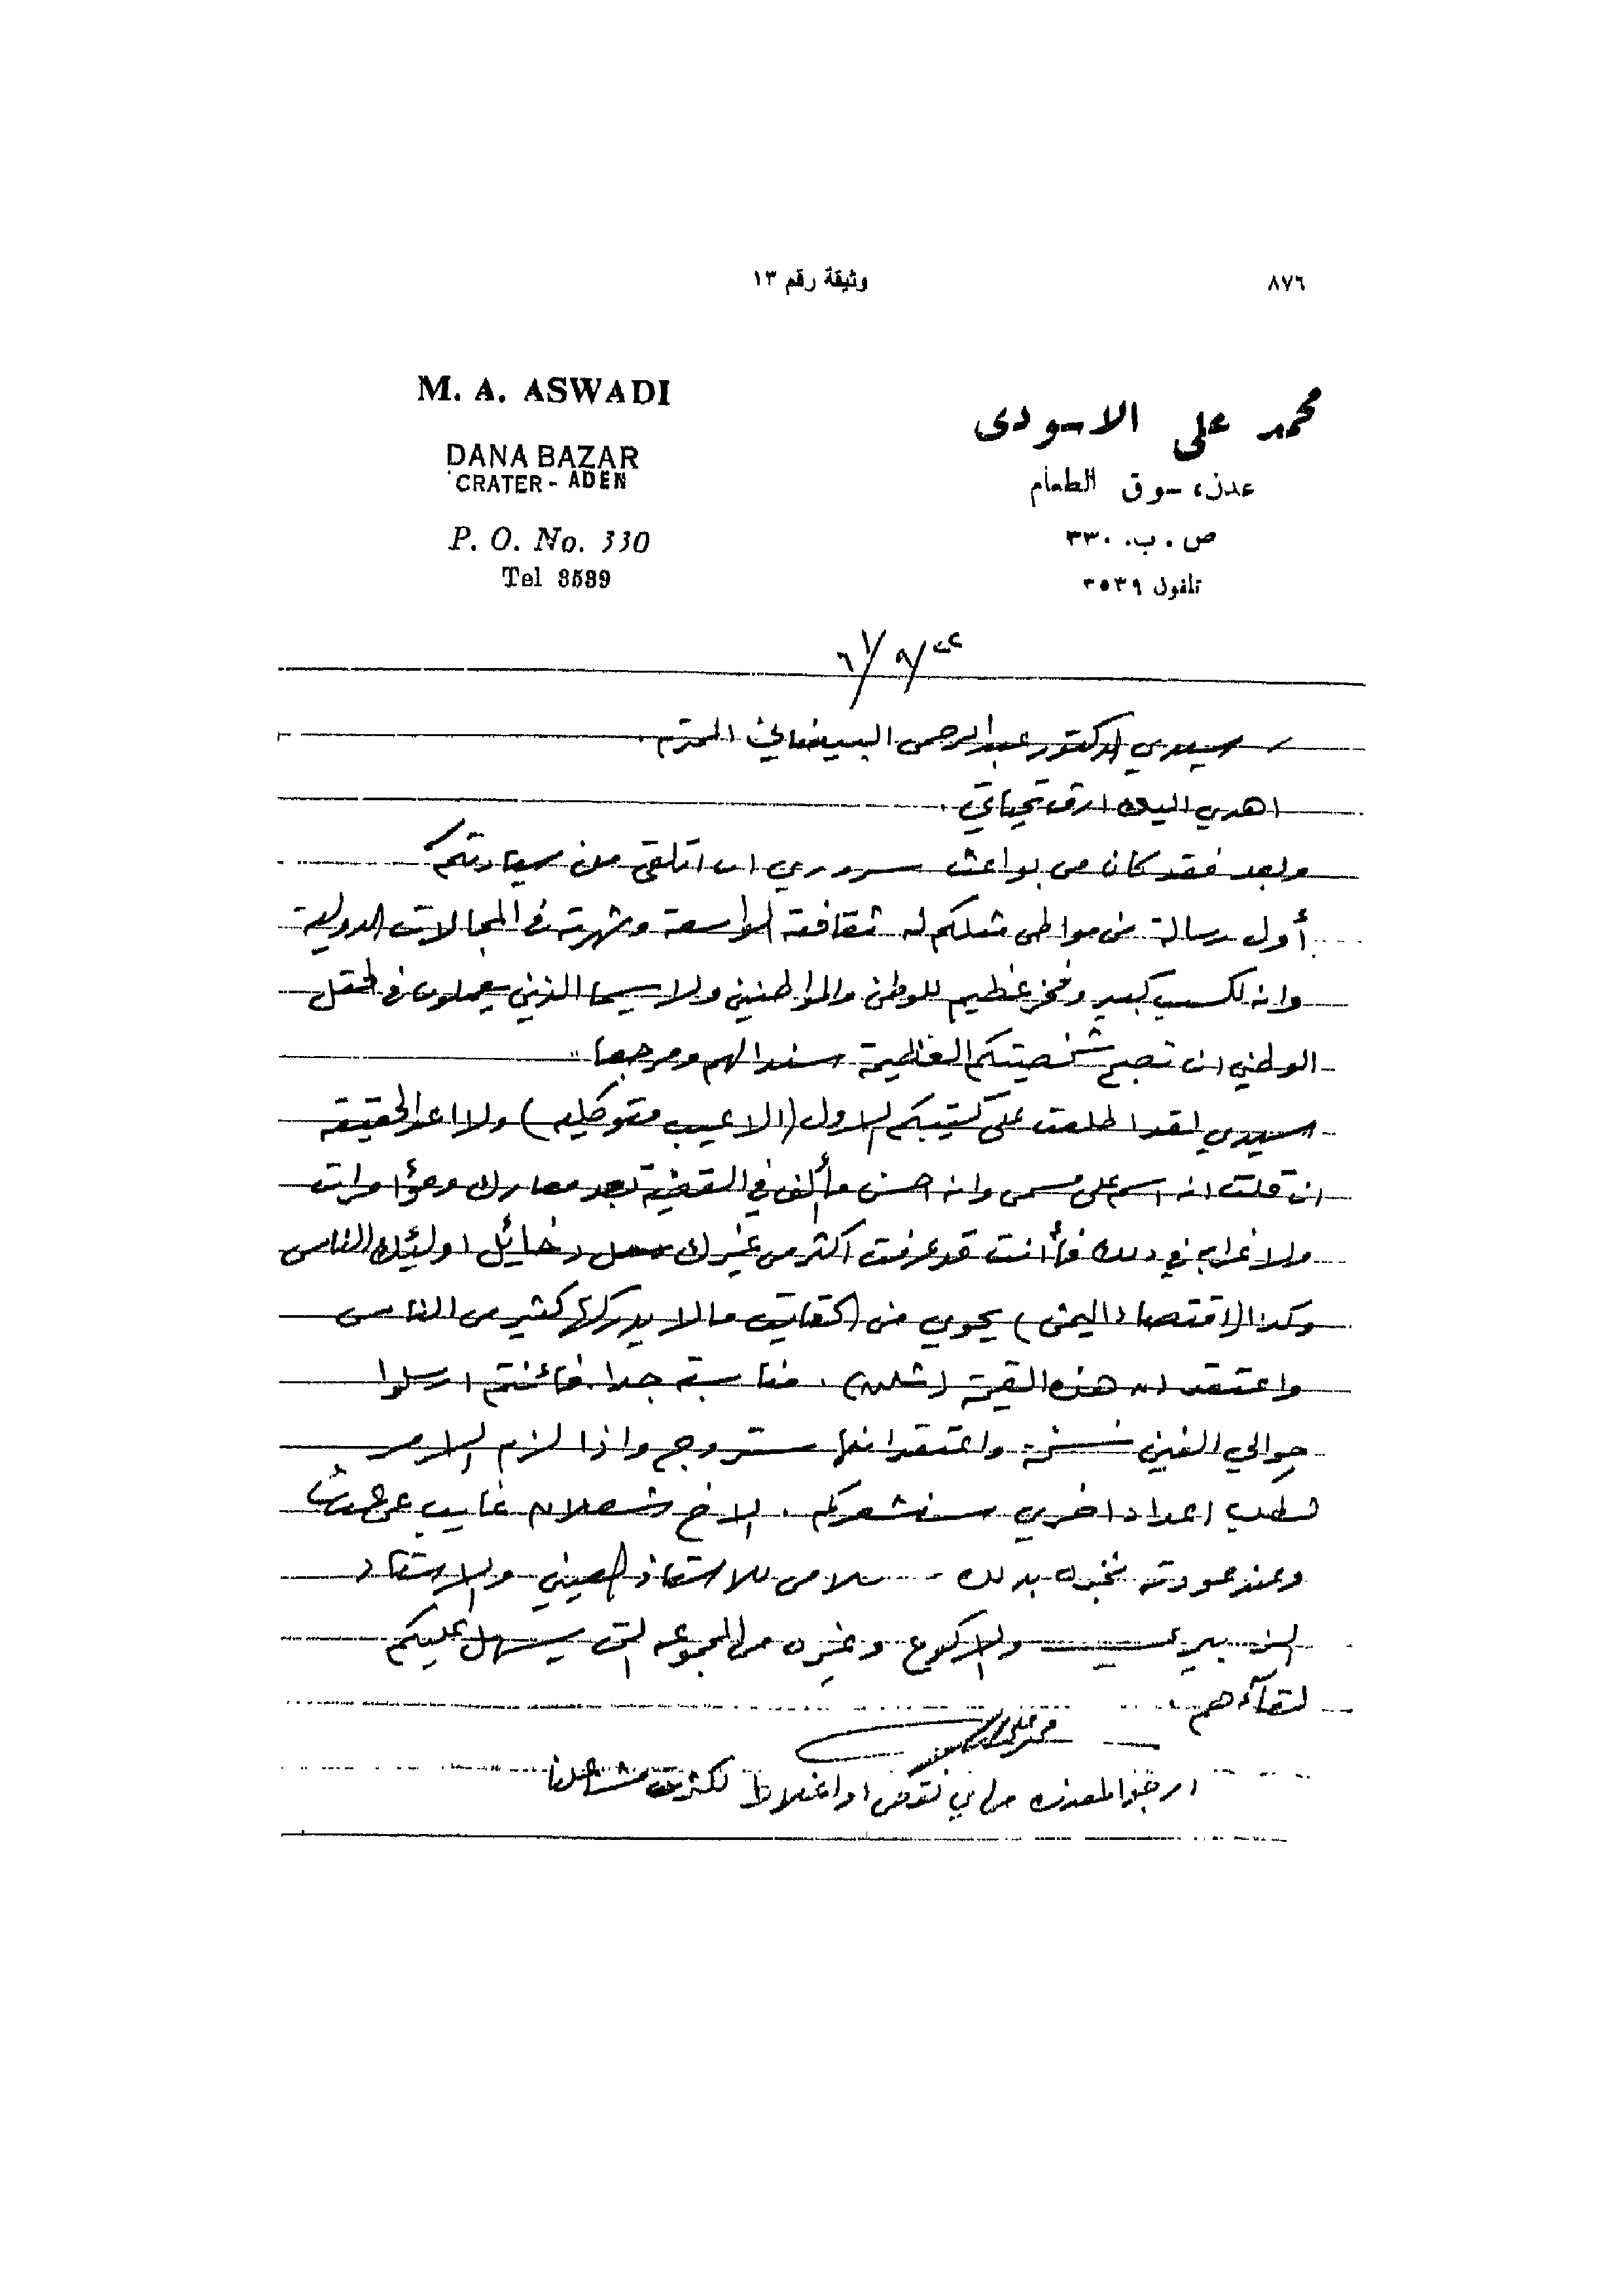 ٨٧٦
وثيقة رقم ١٣
M. A. ASWADI
DANA BAZAR
CRATER - ADEN
P. O. No. 330
Tel 3539
محمد على الاسودى
عدن، سوق الطعام
ص . ب. ٣٣٠
تلفون ٣٥٣٩
سيدي الدكتور عبدالرحمن البيضاني المحترم .
اهدي اليك ارق تحياتي .
وبعد فقد كان من بواعث سروري ان اتلقى من سيادتكم
أول رسالة من مواطن مثلكم له ثقافته الواسعة وشهرته في المجالات الدولية
وانه لكسب كبير وفخر عظيم للوطن والمواطنين ولا سيما الذين يعملون في الحقل
الوطني ان تصبح شخصيتكم العظيمة سندا لهم ومرجعا "
سيدي لقد اطلعت على كتيبكم الاول (الاعيب متوكليه) ولا اعدو الحقيقة
ان قلت انه اسم على مسمى وانه احسن ما ألف في القضية بعد معارك ومؤامرات
ولا غرابه في ذلك فأنت قد عرفت اكثر من غيرك دخائل اولئك الناس
وكذا (الاقتصاد اليمني) يحوي من الحقايق ما لا يدركها كثير من الناس
واعتقد ان هذه القيمة (شلن) . مناسبة جدا . فائنتم ارسلوا
حوالي الفين نسخة واعتقد انها ستروج واذا لزم الامر
لطلب اعداد اخرى سنشعركم . الاخ شعلان غايب عن عدن
وعند عودته نخبره بذلك - سلامي للاستاذ العيني والاستاذ
الزبيري والاكوع وغيره من المجموعه التي يسهل عليكم
لقاءهم .
محمد علي الاسودي
ارجو المعذره من اي نقص او اغلاط لكثرت مشاغلنا